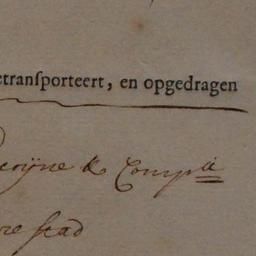 etransporteert, en opgedragen
& Comp^ie
re stad